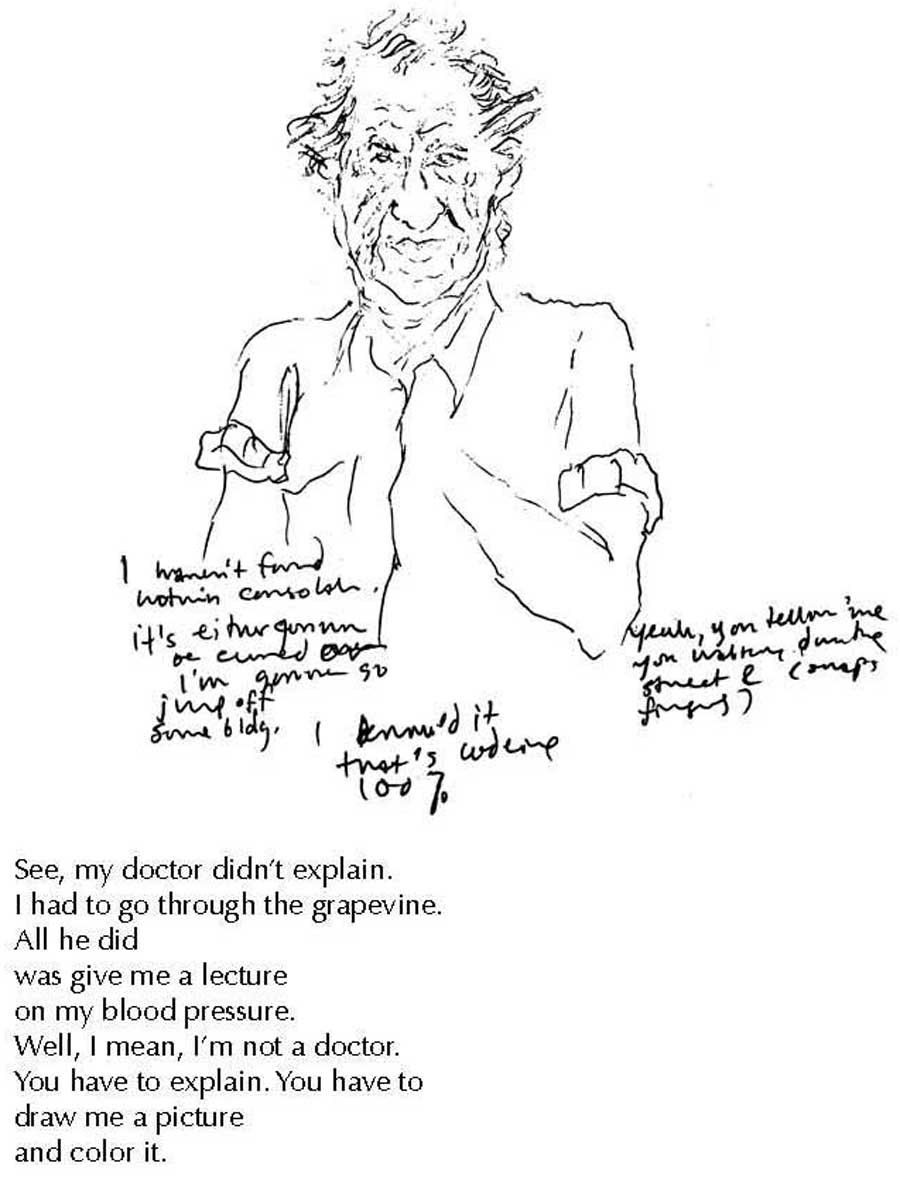 I haven't found
nothin consolable.
it's either gonna
be cured or
I'm gonna go
jump off
some bldg.
I knew'd it
that's codeine
100%
Yeah, you tellin' me
you walking down the
street & (snaps
fingers)
See, my doctor didn't explain.
I had to go through the grapevine.
All he did
was give me a lecture
on my blood pressure.
Well, I mean, I'm not a doctor.
You have to explain. You have to
draw me a picture
and color it.